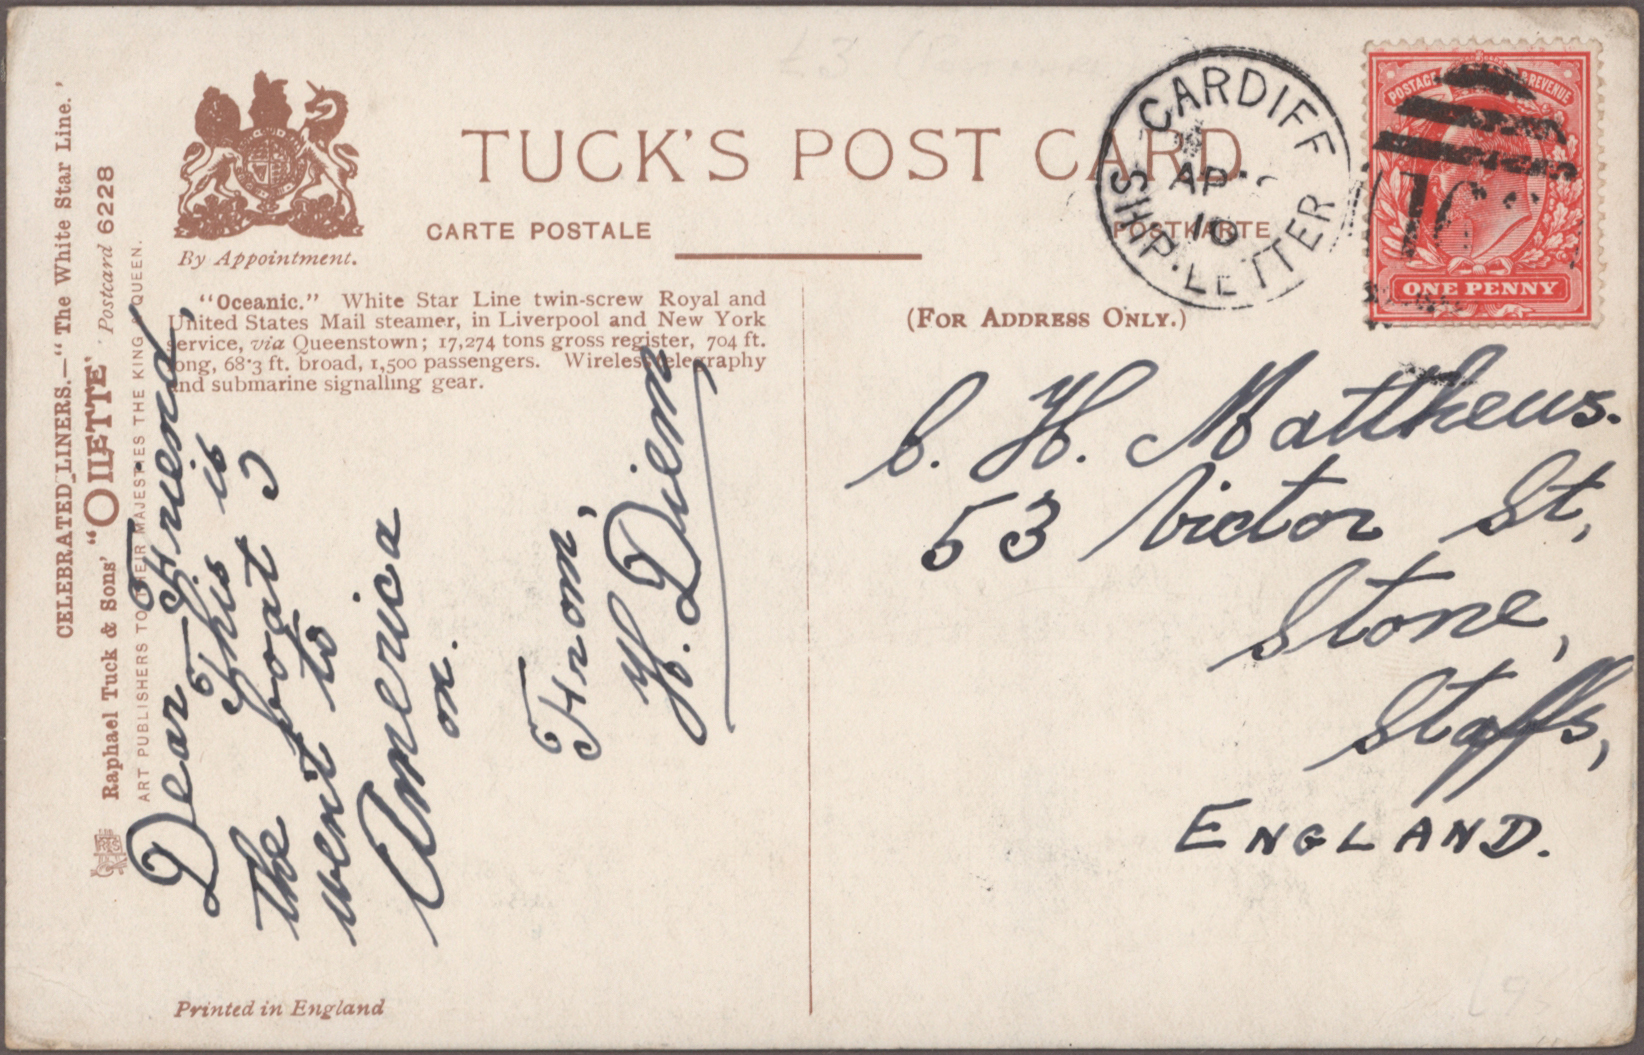 CELEBRATED LINERS.—"The White Star Line.'
Raphael Tuck & Sons' "OILETTE" 'Postcard 6228
ART PUBLISHERS TO THEIR MAJESTIES THE KING & QUEEN.
By Appointment.
TUCK'S POST CARD
CARTE POSTALE
POSTKARTE
"Oceanic." White Star Line twin-screw Royal and
United States Mail steamer, in Liverpool and New York
service, via Queenstown; 17,274 tons gross register, 704 ft.
long, 68·3 ft. broad, 1,500 passengers. Wireless telegraphy
and submarine signalling gear.
(FOR ADDRESS ONLY.)
CARDIFF
AP
10
SHIP-LETTER
POSTAGE REVENUE
ONE PENNY
Dear Friend,
This is
the boat I
went to
America
on.
From,
H. Diem
C. H. Matthews.
53 Victor St,
Stone,
Staffs,
ENGLAND.
Printed in England